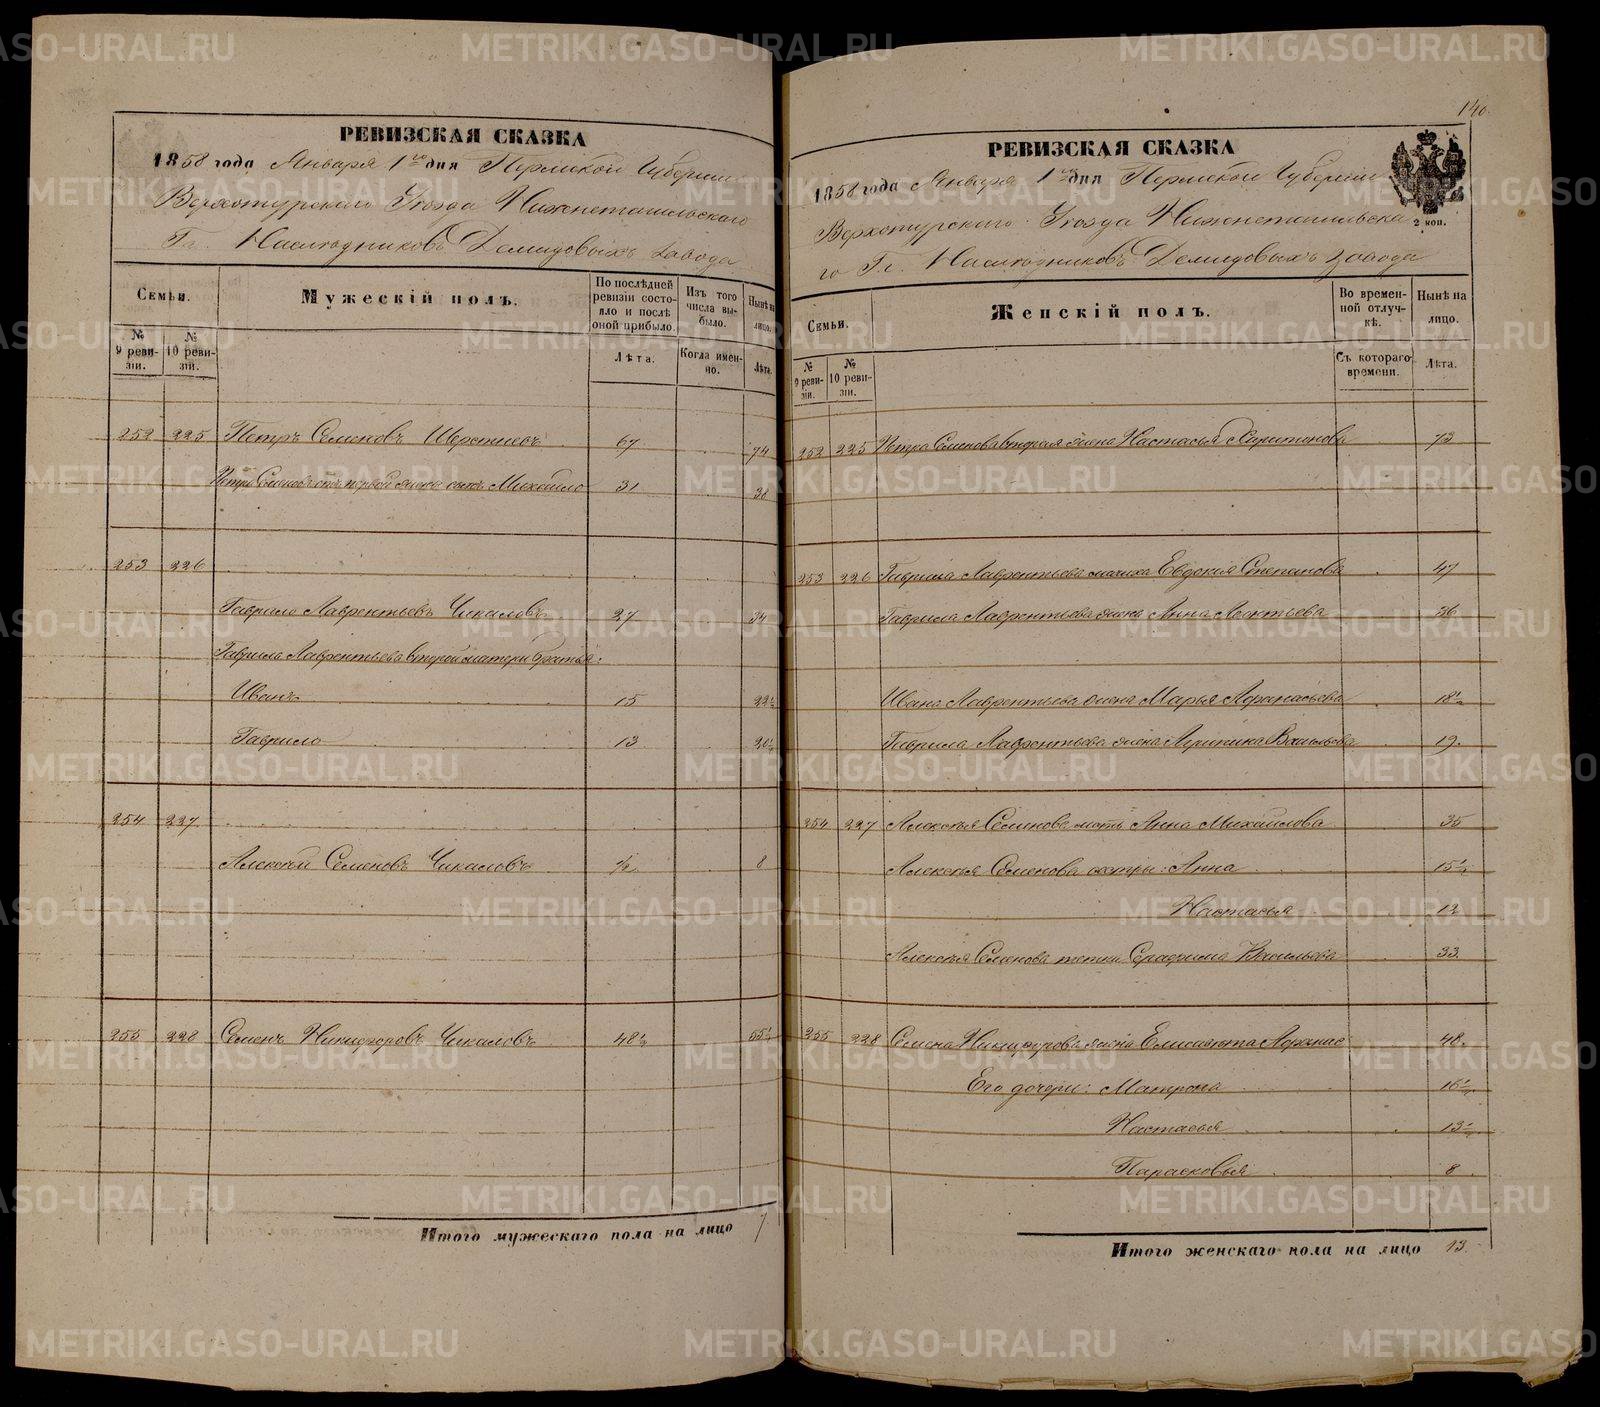 РЕВИЗСКАЯ СКАЗКА
1858 года Января 1го дня Пермской Губернии
Верхотурскаго Уѣзда Нижнетагильскаго
Гг. Наслѣдниковъ Демидовыхъ завода
Семьи.
Мужескій полъ.
По послѣдней ревизіи состояло и послѣ оной прибыло.
Изъ того числа выбыло.
Нынѣ на лицо.
№ 9 ревизіи.
№ 10 ревизіи.
Лѣта.
Когда именно.
Лѣта.
252 225 Петръ Семеновъ 67 74
Петра Семенова отъ первой жены сынъ Михайло 31 38
253 226
Гаврило Лаврентьевъ Чикаловъ 27 34
Гаврила Лаврентьева второй матери братья:
Иванъ 15 22½
Гаврило 13 20½
254 227
Алексѣй Семеновъ Чикаловъ ½ 8
255 228 Семенъ Никифоровъ Чикаловъ 48½ 55½
Итого мужескаго пола на лицо 7
140.
РЕВИЗСКАЯ СКАЗКА
1858 года Января 1го дня Пермской Губерніи
Верхотурскаго Уѣзда Нижнетагильска
го Гг. Наслѣдниковъ Демидовыхъ завода
2 коп.
Семьи.
Женскій полъ.
Во временной отлучкѣ.
Нынѣ на лицо.
№ 9 ревизіи.
№ 10 ревизіи.
Съ котораго времени.
Лѣта.
252 225 Петра Семенова вторая жена Настасья Харитонова 73
253 226 Гаврила Лаврентьева мачиха Евдокія Степанова 47
Гаврила Лаврентьева жена Анна Леонтьева 36
Ивана Лаврентьева жена Марья Афанасьева 18½
Гаврила Лаврентьева жена Васильева 19.
254 227 Алексѣя Семенова мать Анна Михайлова 35
Алексѣя Семенова сестры: Анна 15½
Настасья 12
Алексѣя Семенова тетка Серафима Васильева 33.
255 228 Семена Никифорова жена Елисавета Афанас 48.
Его дочери: Матрена 16½
Настасья 13½
Парасковья 8
Итого женскаго пола на лицо 13.
METRIKI.GASO-URAL.RU